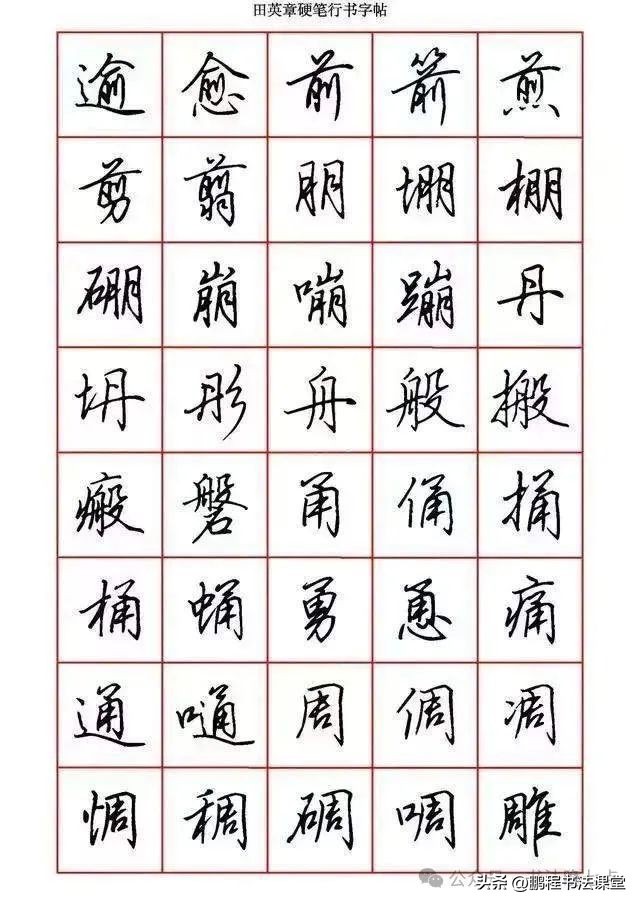 田英章硬笔行书字帖
逾愈前箭煎
剪翦朋堋棚
硼崩嘣蹦丹
坍彤舟般搬
瘢磐甬俑捅
桶蛹勇恿痛
通嗵周倜凋
惆稠碉啁雕
头条@鹏程书法课堂